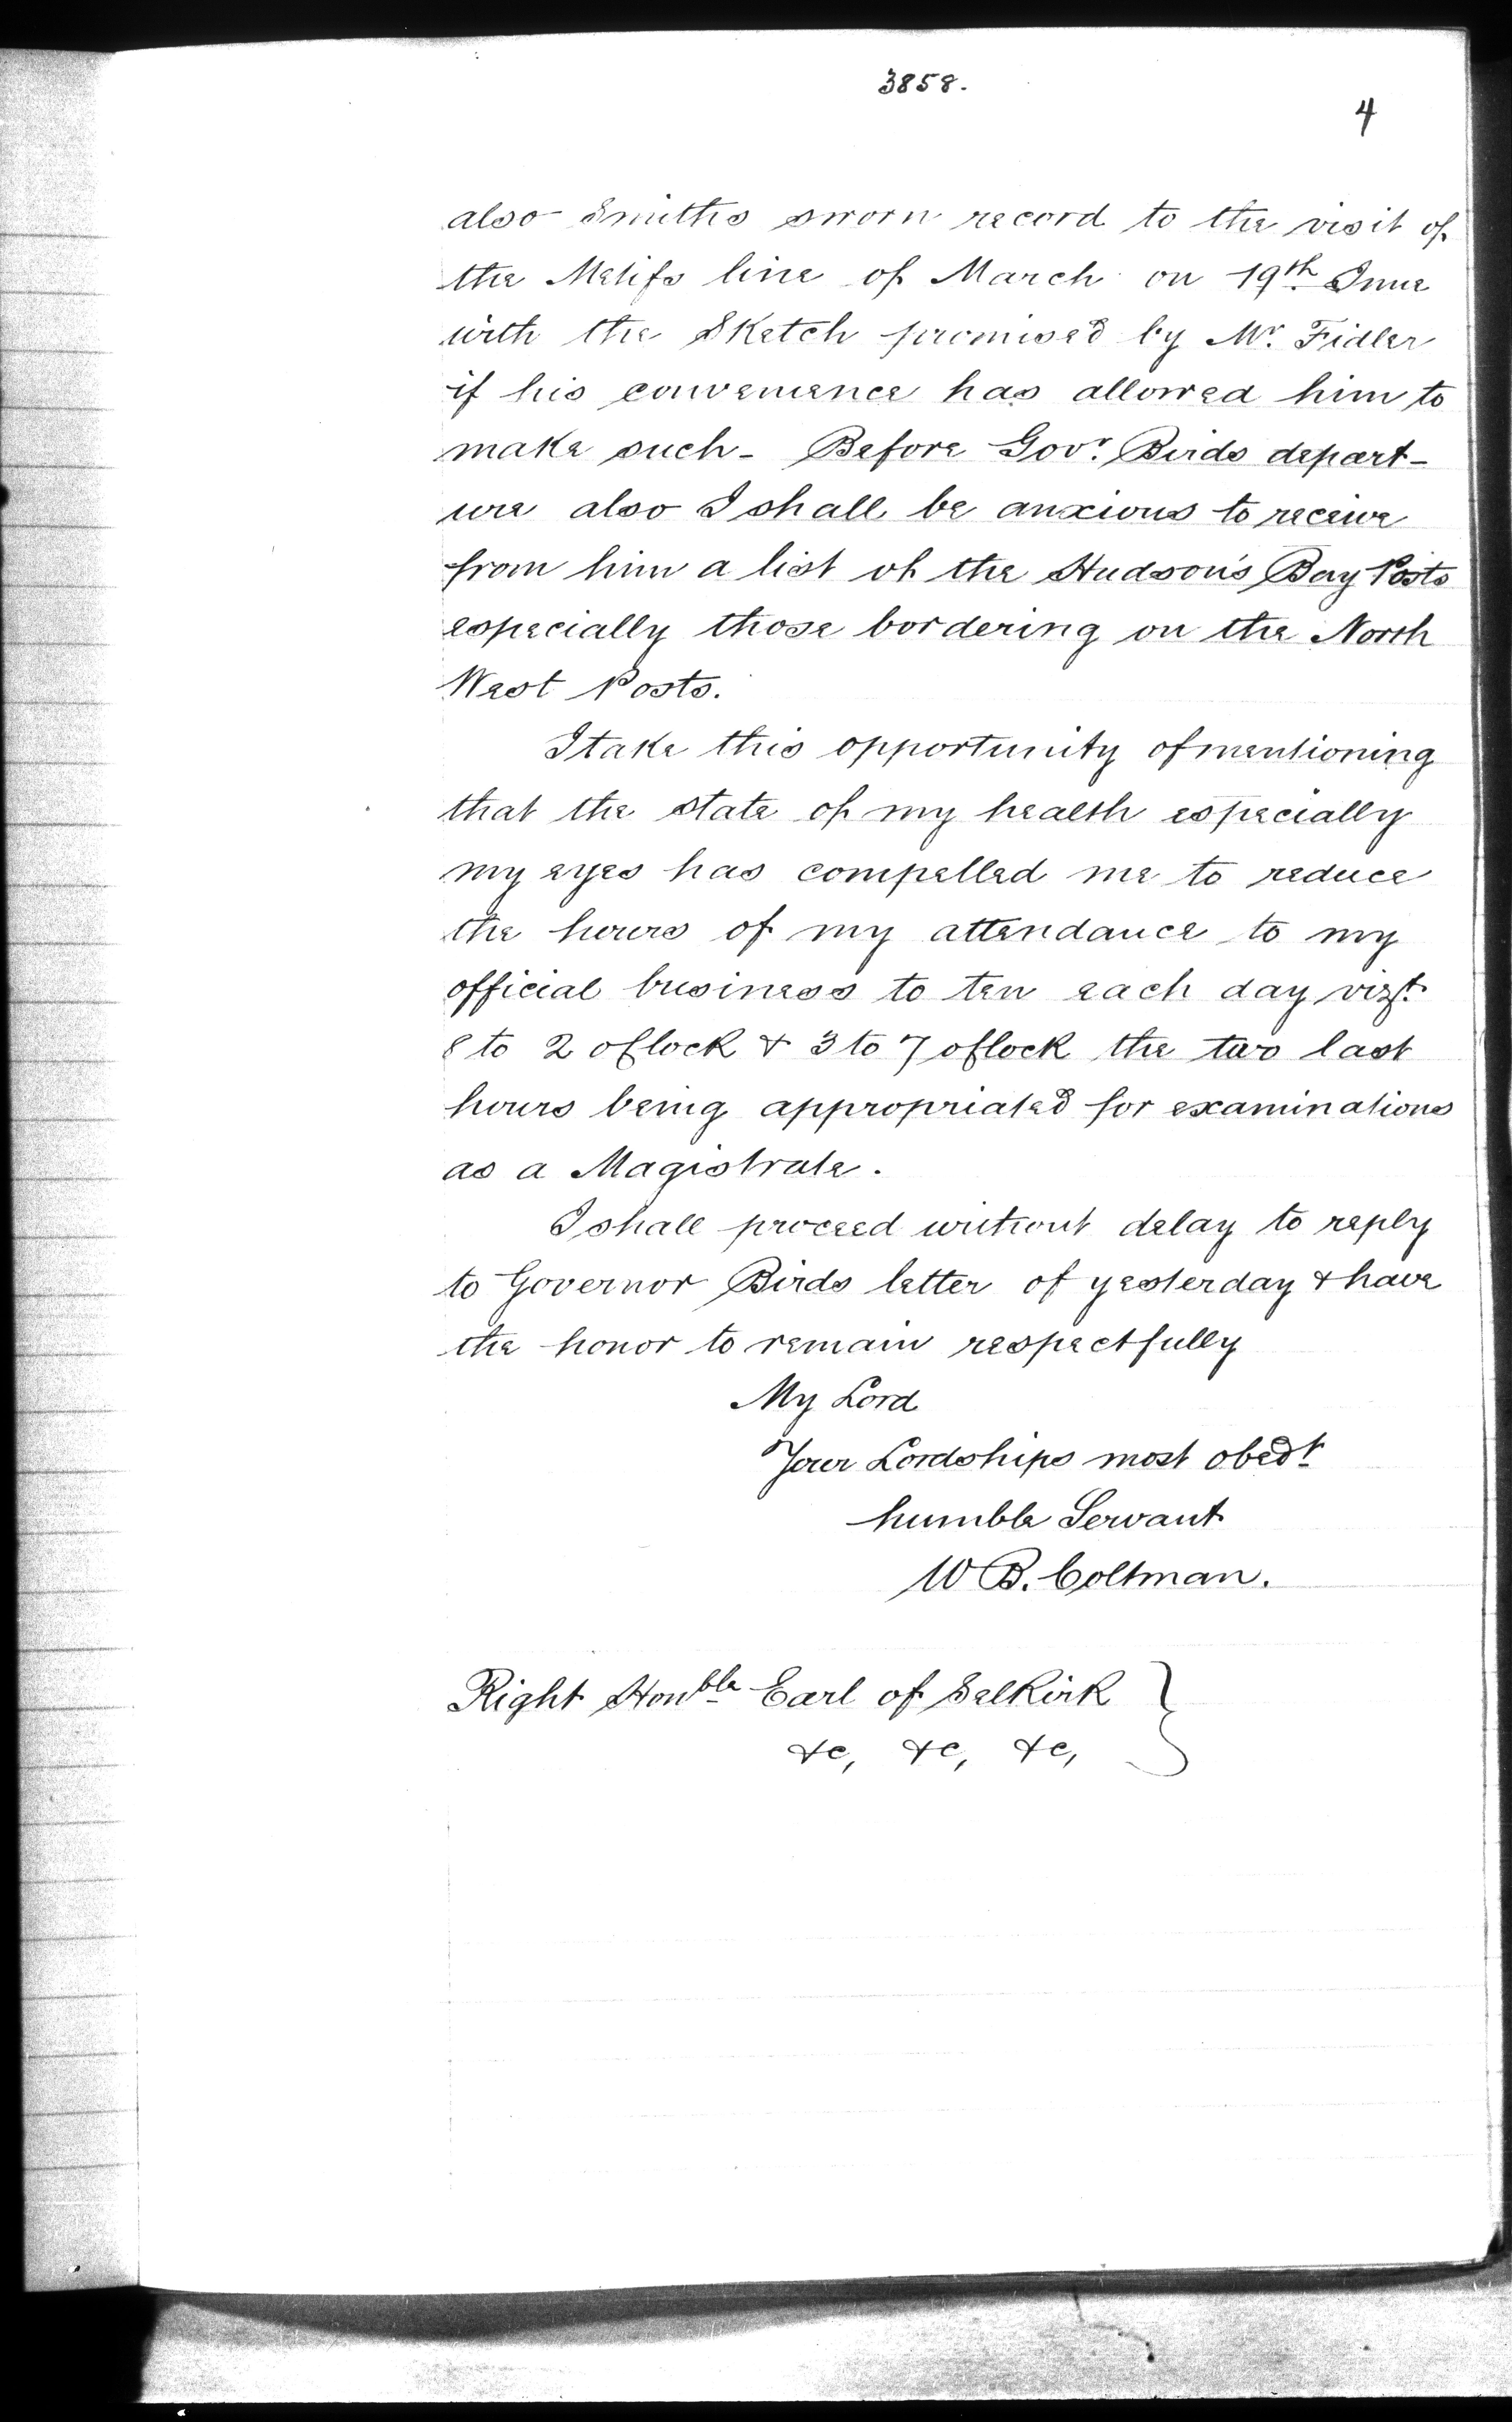 3858.
4
also Smiths sworn record to the visit of
the Metifs line of March on 19th June
with the Sketch promised by Mr. Fidler
if his convenience has allowed him to
make such - Before Govr. Birds depart-
ure also I shall be anxious to receive
from him a list of the Hudson's Bay Posts
especially those bordering on the North
West Posts.
I take this opportunity of mentioning
that the state of my health especially
my eyes has compelled me to reduce
the hours of my attendance to my
official business to ten each day vizt.
8 to 2 oClock & 3 to 7 oClock the two last
hours being appropriated for examinations
as a Magistrate.
I shall proceed without delay to reply
to Governor Birds letter of yesterday & have
the honor to remain respectfully
My Lord
Your Lordships most obedt
humble Servant
W B. Coltman.
Right Honble Earl of Selkirk }
&c, &c, &c,